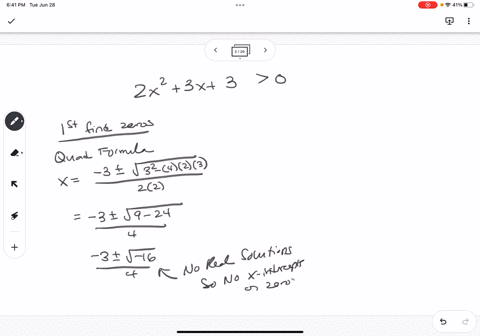 6:41 PM Tue Jun 28
41%
2x² + 3x + 3 > 0
1st find zeros
Quad Formula
x = (-3 ± √(3² - (4)(2)(3))) / 2(2)
= (-3 ± √(9 - 24)) / 4
(-3 ± √-16) / 4
No Real Solutions
So No x-intercepts
or zero